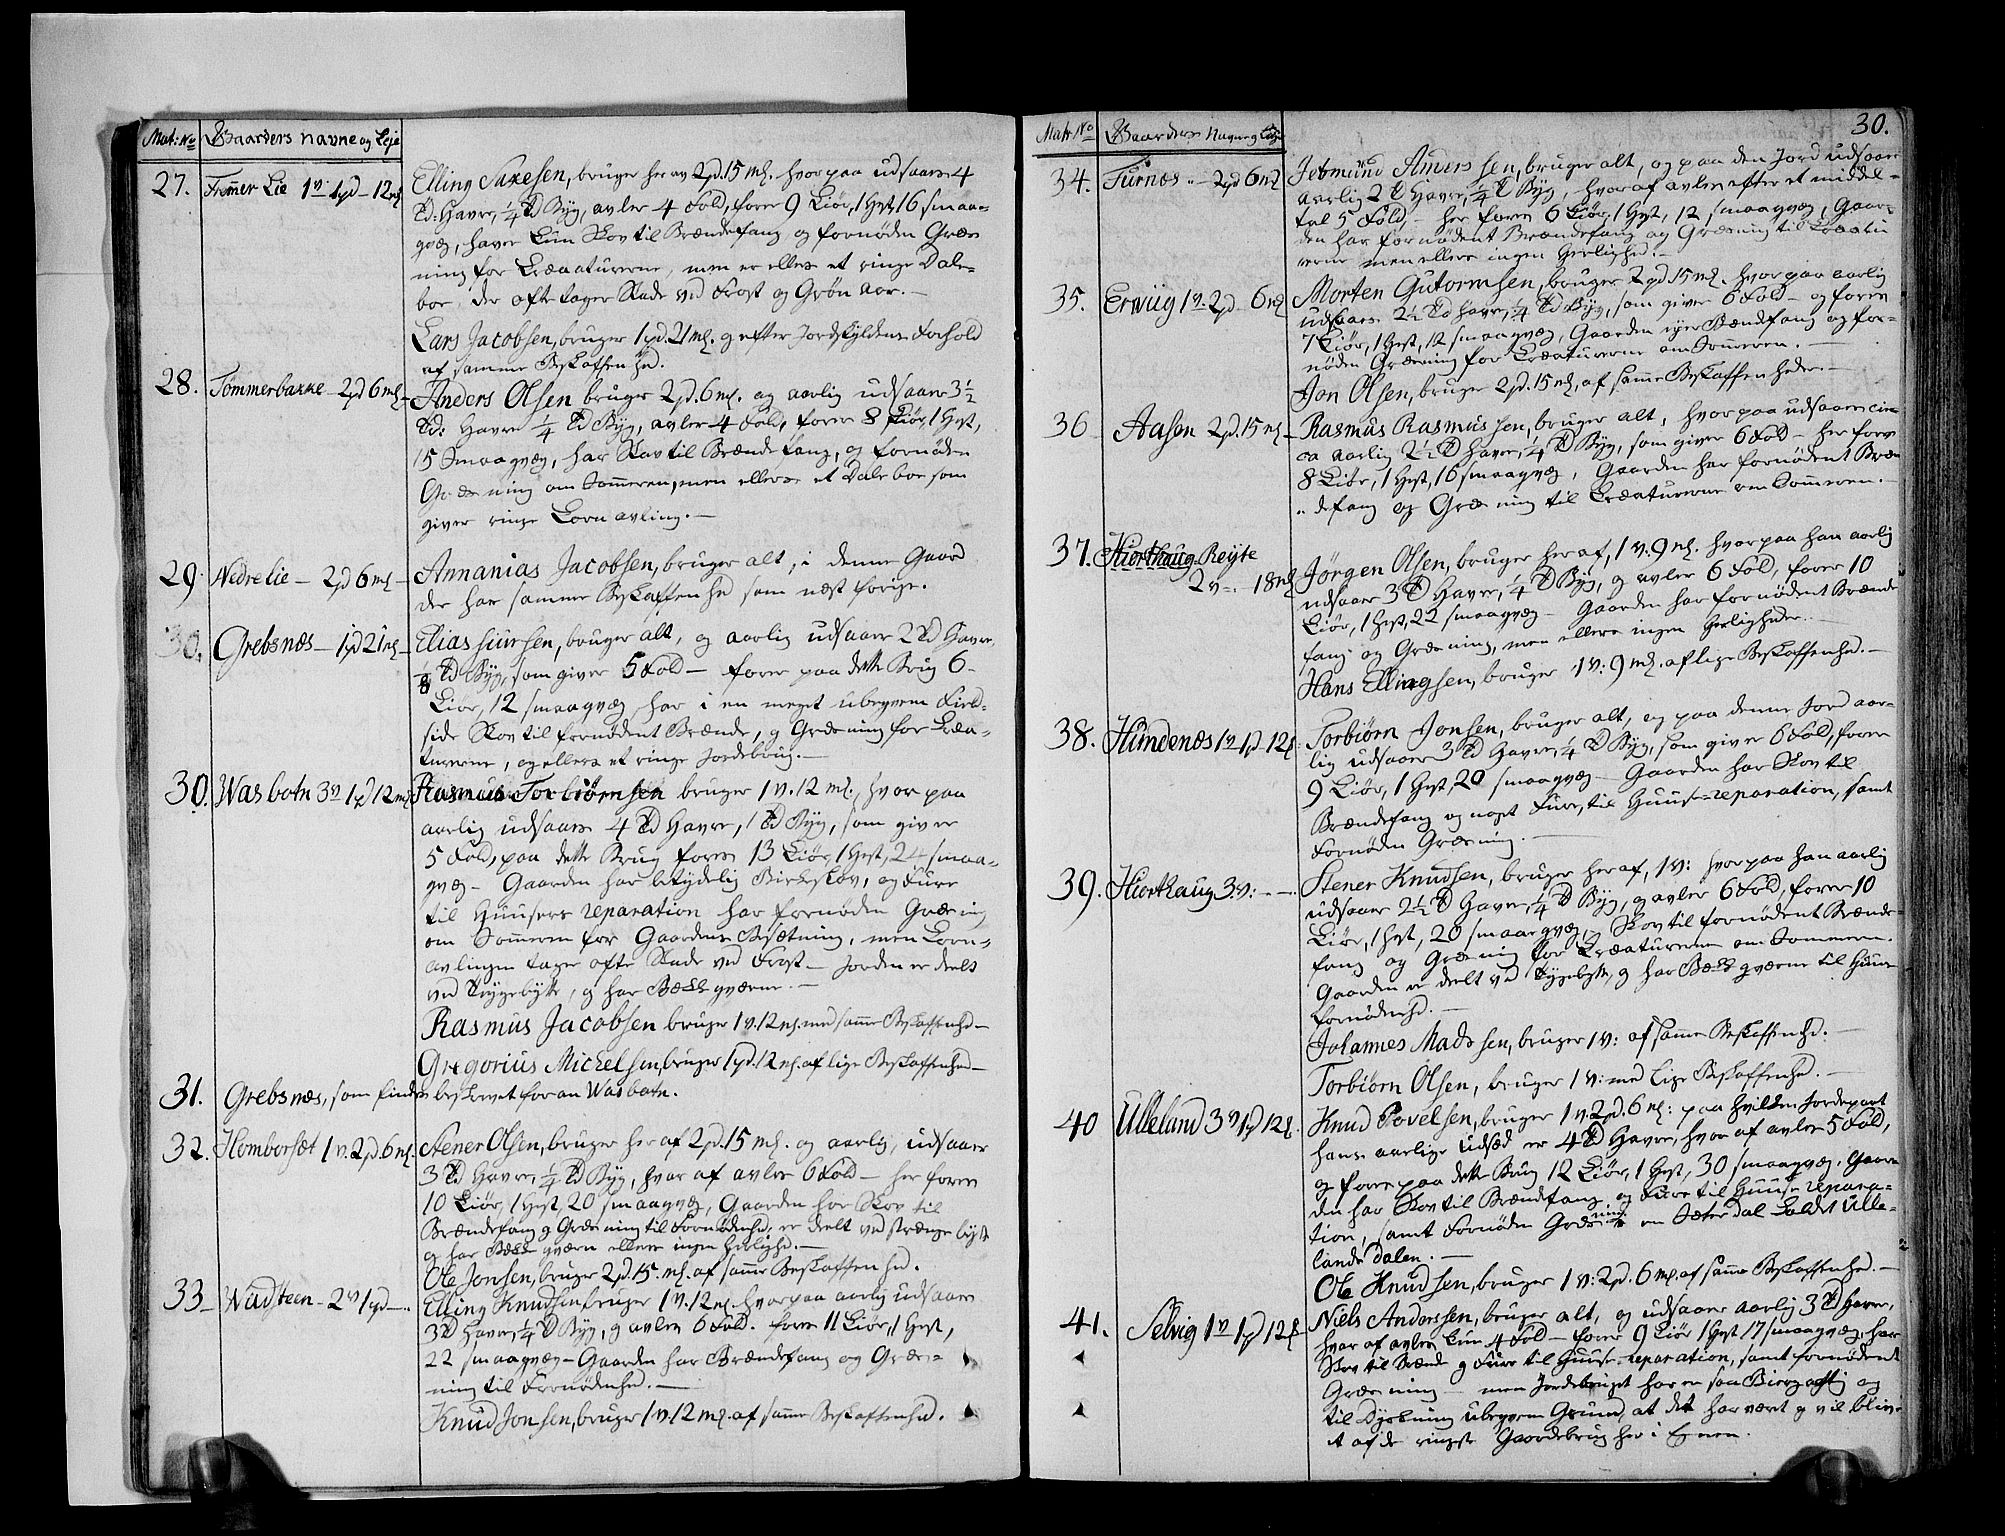 Matr: No Gaarders navne og Leje
27. Fremer Lie 1 v 1 pd - 12 mk Elling Saxesen, bruger her av 2 pd. 15 mk. hvorpaa udsaaes 4
Td. Havre, 1/4 Td Byg, avler 4 Fold, forer 9 Kiør, 1 Hest, 16 smaa-
qvæg, haver kun Skov til Brændefang og fornøden Græs-
ning for Creaturerne, men er ellers et ringe Dale-
boe, der ofte tager Skade ved Frost og Grøn aar.
Lars Jacobsen, bruger 1 pd. 21 mk. og efter Jordskyldens Forhold
af samme Beskaffenhed.
28. Tommerbakke - 2 pd 6 mk - Anders Olsen bruger 2 pd. 6 mk. og aarlig udsaaer 3 1/2
Td: Havre 1/4 Td Byg, avler 4 Fold, forer 8 Kiør, 1 Hest,
15 Smaaqvæg, har Skov til Brændefang, og fornøden
Græsning om Sommeren, men ellers et Daleboe som
giver ringe Kornavling.
29. Nedre Lie - 2 pd 6 mk - Annanias Jacobsen, bruger alt, i denne Gaard
der har samme Beskaffenhed som næst forige.
30. Grebsnæs - 1 pd 21 mk - Elias Siursen, bruger alt, og aarlig udsaaer 2 Td Havre
1/8 Td Byg, som giver 5 Fold - forer paa dette Brug 6
Kiør, 12 smaaqvæg, har i en meget ubeqvem Field-
side Skov til fornødent Brænde, og Græsning for Crea-
turerne, og ellers et ringe Jordebrug.
30. Wasbotn 3 v 1 pd 12 mk Rasmus Torbiørnsen bruger 1 v. 12 mk., hvorpaa
aarlig udsaaes 4 Td Havre, 1 Td Byg, som giver
5 Fold, paa dette Brug fores 13 Kiør, 1 Hest, 24 smaa-
qvæg - Gaarden har betydelig Birkeskov, og Furre
til Huusers reparation har fornøden Græsning
om Sommeren for Gaardens Besætning, men Korn-
avlingen tager ofte Skade ved Frost - Jorden er deelt
ved Teygebytte, og har Bækk qværne.
Rasmus Jacobsen bruger 1 v. 12 mk. med samme Beskaffenhed -
Gregorius Michelsen, bruger 1 pd. 12 mk. af lige Beskaffenhed -
31. Grebsnæs, som findes beskrevet foran Wasbotn.
32. Homborsæt 1 v. 2 pd. 6 mk. Stener Olsen, bruger her af 2 pd. 15 mk. og aarlig, udsaaer
3 Td Havre, 1/4 Td Byg, hvor af avler 6 Fold - her fores
10 Kiør, 1 Hest, 20 smaaqvæg, Gaarden har Skov til
Brændefang og Græsning til Fornødenhed, er deelt ved strænge bytte
og har Bækk qværn ellers ingen herlighed.
Ole Jonsen, bruger 2 pd. 15. mk. af samme Beskaffenhed.
33 - Wadsteen - 2 v 1 pd - Elling Knudsen bruger 1 v. 12 mk. hvorpaa aarlig udsaaes
3 Td Havre, 1/4 Td Byg, og avler 6 Fold. forer 11 Kiør, 1 Hest,
22 smaaqvæg - Gaarden har Brændefang og Græs-
ning til Fornødenhed.
Knud Jonsen, bruger 1 v. 12 mk. af samme Beskaffenhed.
Matr: No Gaarders Navne og Leje
30.
34. Furnæs - 2 pd 6 mk Jetmund Anderssen, bruger alt, og paa den Jord udsaaer
aarlig 2 Td Havre, 1/4 Td Byg, hvoraf avles efter et middel-
tal 5 Fold - her fores 6 Kiør, 1 Hest, 12 smaaqvæg, Gaar-
den har fornødent Brændefang og Græsning til Creatu
rerne men ellers ingen Herlighed.
35. Erwiig 1 v. 2 pd 6 mk Morten Gutormsen, bruger 2 pd 15 mk. hvorpaa aarlig
udsaaes 2 1/2 Td havre, 1/4 Td Byg, som giver 6 Fold - og forer
7 Kiør, 1 Hest, 12 smaaqvæg, Gaarden ejer Brændefang og for-
nøden Græsning for Creaturerne om Sommeren.
Jon Olsen, bruger 2 pd. 15 mk, af samme Beskaffenhed.
36 Aasen 2 pd. 15 mk - Rasmus Rasmussen, bruger alt, hvorpaa udsaaes cir-
ca aarlig 2 1/2 Td havre, 1/4 Td Byg, som giver 6 Fold - her fores
8 Kiør, 1 Hest, 16 smaaqvæg, Gaarden har fornødent Bræn
defang og Græsning til Creaturerne om Sommeren.
37. Hiorthaug Reyte
2 v - 18 mk Jørgen Olsen, bruger her af, 1 v. 9 mk. hvorpaa han aarlig
udsaaer 3 Td Havre, 1/4 Td Byg, og avler 6 Fold, forer 10
Kiør, 1 Hest, 22 smaaqvæg - Gaarden har fornødent Brænde
fang og Græsning, men ellers ingen Herligheder.
Hans Ellingsen, bruger 1 v: 9 mk. af lige Beskaffenhed.
38. Hundenæs 1 v 1 pd 12 mk Torbiørn Jonsen, bruger alt, og paa denne Jord aar-
lig udsaaer 3 Td Havre, 1/4 Td Byg, som giver 6 Fold, forer
9 Kiør, 1 Hest, 20 smaaqvæg - Gaarden har Skov til
Brændefang og noget Furre, til Huuse-reparation, samt
Fornøden Græsning.
39. Hiorthaug 3 v: - - Stener Knudsen, bruger her af, 1 v: hvorpaa han aarlig
udsaaer 2 1/2 Td Havre, 1/4 Td Byg, og avler 6 Fold, forer 10
Kiør, 1 Hest, 20 smaaqvæg, Skov til fornødent Brænde-
fang og Græsning for Creaturerne om Sommeren.
Gaarden er deelt ved Teygebytte, og har Bækk qværne til Huus
fornødenhed.
Johannes Madssen, bruger 1 v: af samme Beskaffenhed.
Torbiørn Olsen, bruger 1 v: med lige Beskaffenhed.
40 Ulleland 3 v 1 pd 12 mk. Knud Povelsen, bruger 1 v: 2 pd. 6 mk: paa hvilken Jordepart
hans aarlige udsæd er 4 Td Havre, hvoraf avles 5 Fold,
og fores paa dette Brug 12 Kiør, 1 Hest, 30 smaaqvæg, Gaar-
den har Skov til Brændefang og Furre til Huuse repara-
tion, samt Fornøden Græsning en Sæterdal kaldet Ulle-
landsdalen.
Ole Knudsen, bruger 1 v: 2 pd. 6 mk. af samme Beskaffenhed.
41. Selvig 1 v 1 pd 12 mk Niels Anderssen, bruger alt, og udsaaer aarlig 3 Td Havre,
hvoraf avles kun 4 Fold - forer 9 Kiør 1 Hest 17 smaaqvæg, har
Skov til Brænde og Furre til Huuse-reparation, samt fornødent
Græsning - men Jordebruget har en saa Biergagtig og
til Dyrkning ubeqvem Grund, at det har vært og vil blive
et af de ringeste Gaardebrug her i Egnen.